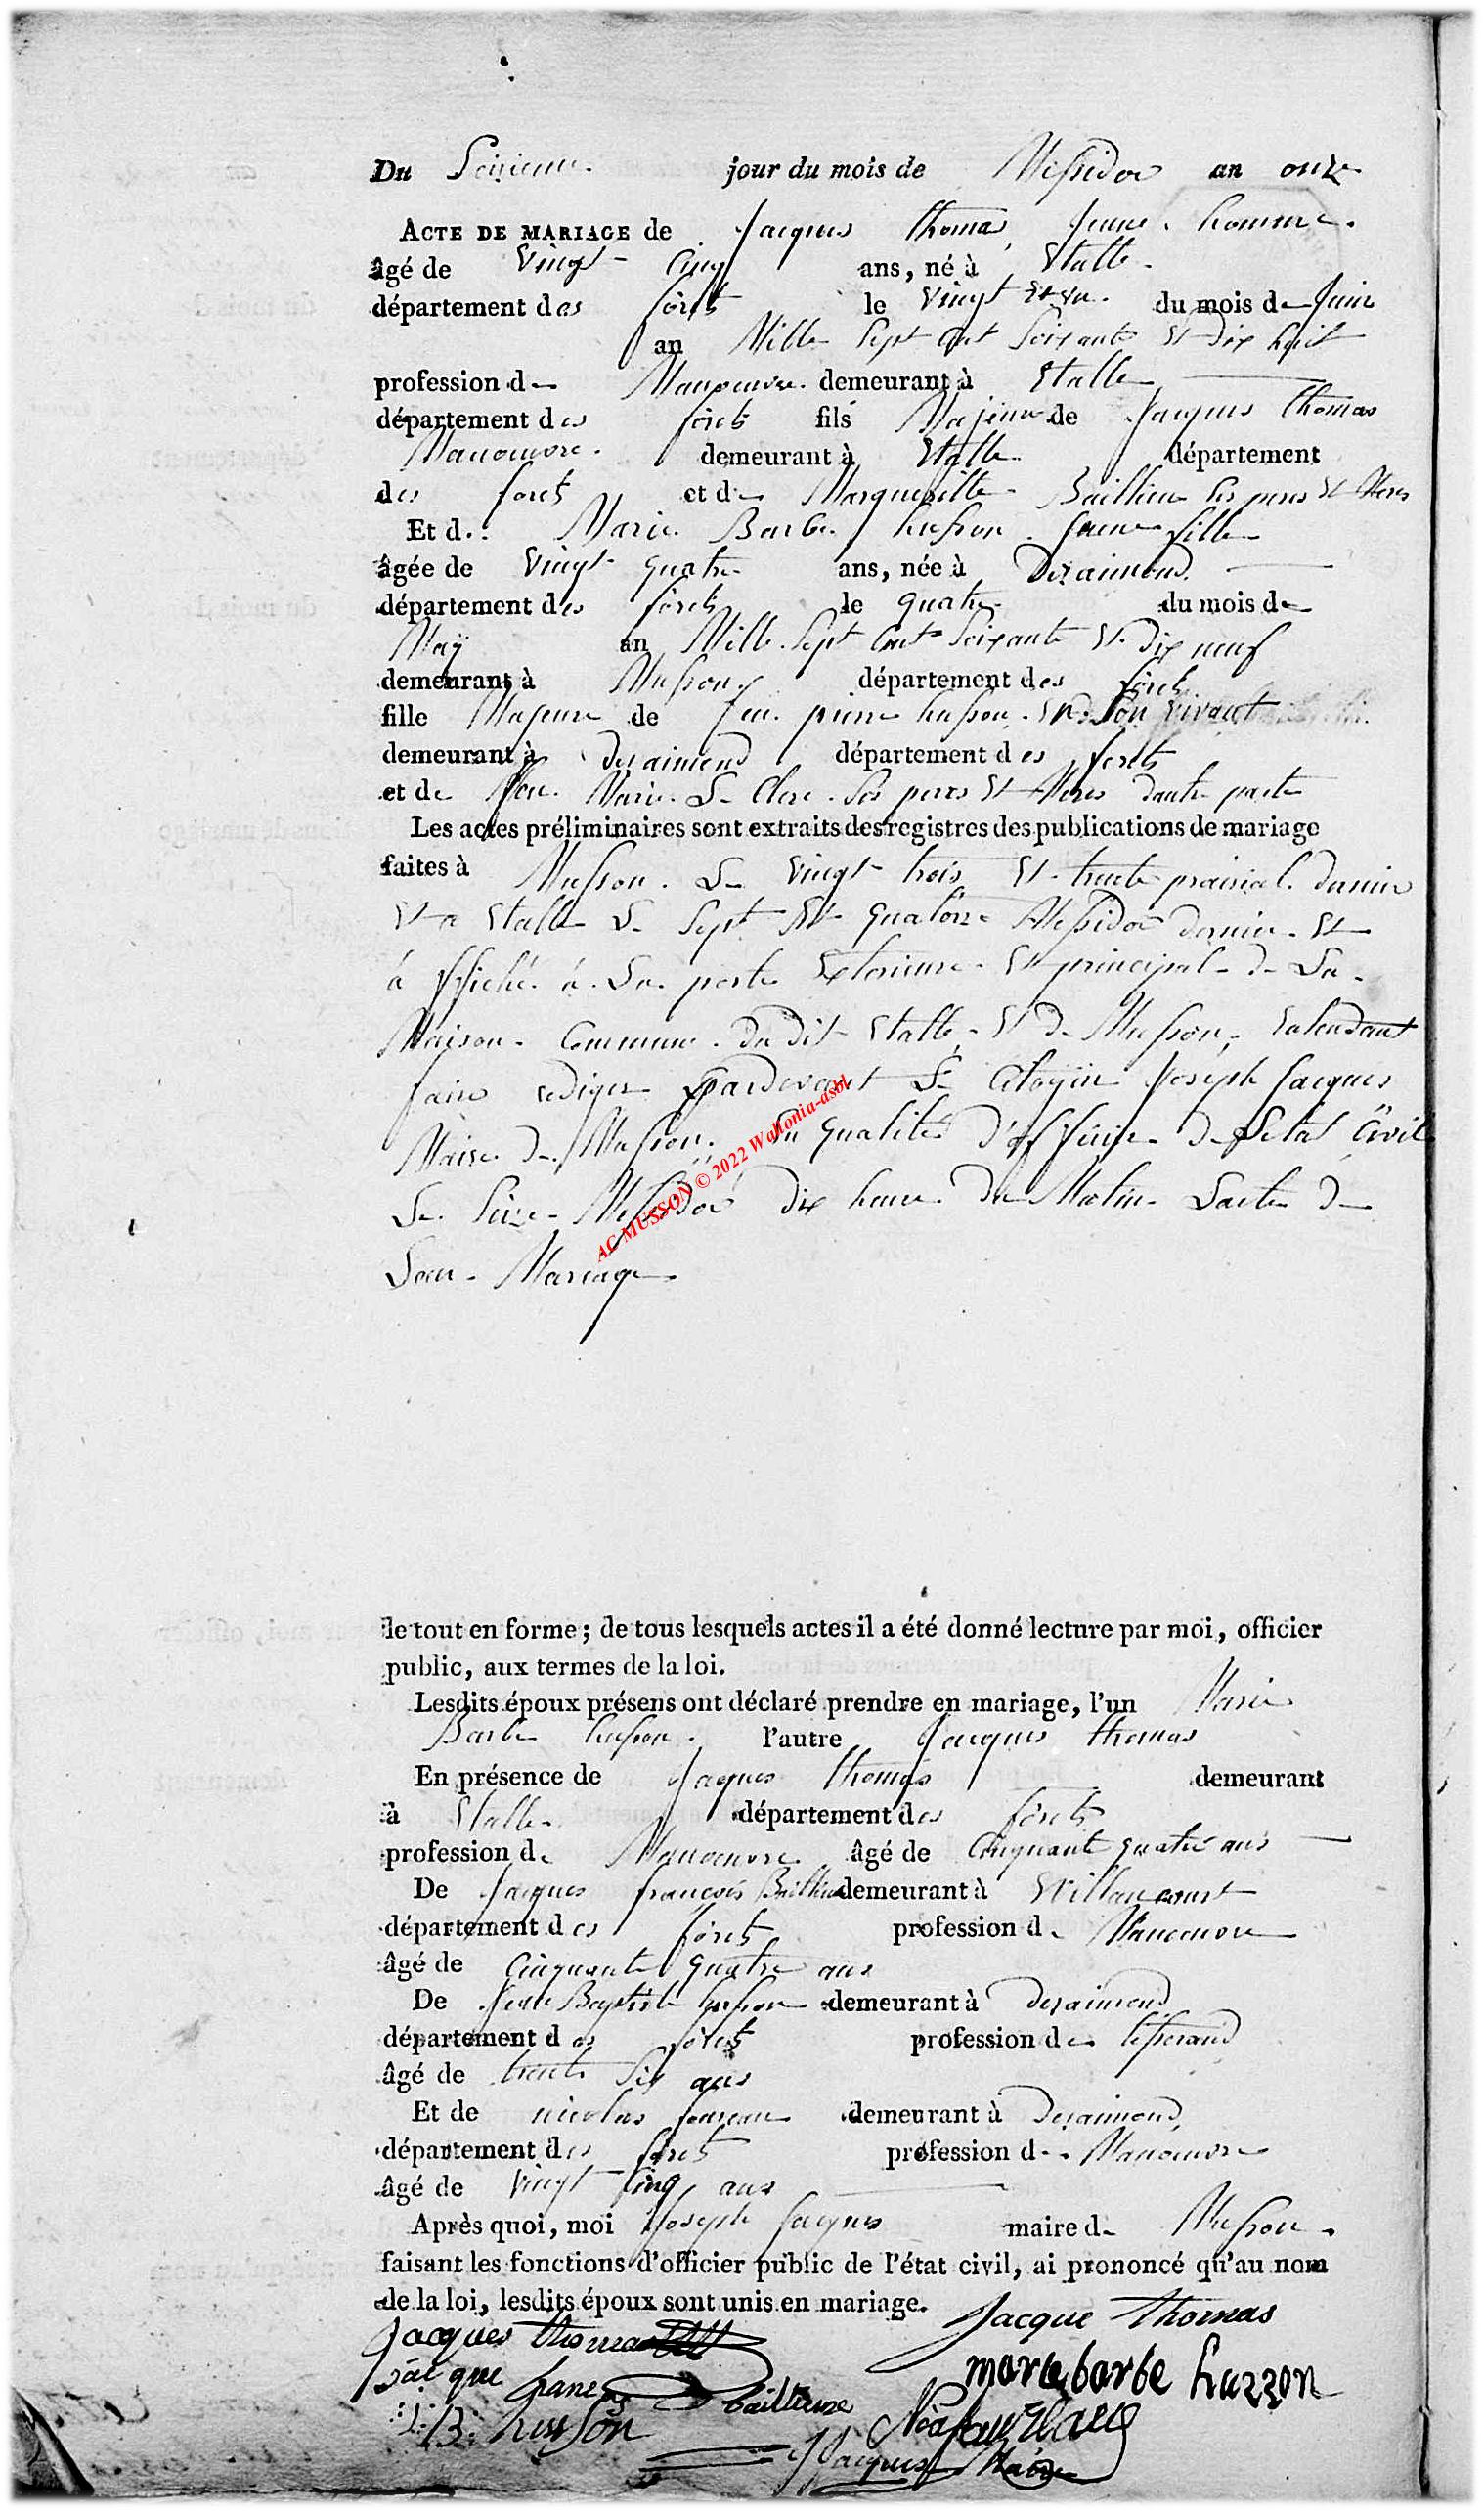 Du Seizieme jour du mois de Messidor an onze
ACTE DE MARIAGE de Jacques thomas Jeune homme
âgé de Vingt Cinq ans, né à Etalle
département des forêts le Vingt et un du mois de Juin
an Mille Sept Cent Soixante Et dix huit
profession de Manoeuvre demeurant à Etalle
département des forêts fils Majeur de Jacques thomas
Manoeuvre demeurant à Etalle département
des forets et de Margueritte Baillieux Ses peres Et Meres
Et d. Marie Barbe husson Jeune fille
âgée de Vingt quatre ans, née à Deraimond
département des forêts le quatre du mois de
Maÿ an Mille Sept Cent Soixante Et Dix neuf
demeurant à Musson département des forêts
fille Majeure de feu pierre husson En Son vivant
demeurant à deraimond département des forêts
et de feu Marie Le Clerc Ses peres Et Meres dautre parte
Les actes préliminaires sont extraits des registres des publications de mariage
faites à Musson Le Vingt trois Et trente prairial dernier
Et a Etalle Le Sept Et quatorze Messidor dernier Et
á ffiché á La porte Exterieure Et principal de La
Maison Commune du dit Etalle Et de Musson, Entendant
faire rediger pardevant Le Citoyin Joseph Jacques
Maire de Musson En qualité d'officier de Letat Civil
Le Seize Messidor dix heure du Matin Lacte de
Leur Mariage
AC MUSSON © 2022 Wallonia-asbl
le tout en forme; de tous lesquels actes il a été donné lecture par moi, officier
public, aux termes de la loi.
Lesdits époux présens ont déclaré prendre en mariage, l'un Marie
Barbe husson l'autre Jacques thomas
En présence de Jaques thomas demeurant
à Etalle département des forêts
profession de Manoeuvre âgé de Cinquante quatre ans
De Jacques françois Baillieux demeurant à Willancourt
département des forêts profession de Manoeuvre
âgé de Cinquante quatre ans
De Jean Baptiste husson demeurant à deraimond
département des forêts profession de tisserand
âgé de trente Six ans
Et de nicolas demeurant à Deraimond
département des forêts profession de Manoeuvre
âgé de Vingt Cinq ans
Après quoi, moi Joseph Jacques maire de Musson
faisant les fonctions d'officier public de l'état civil, ai prononcé qu'au nom
de la loi, lesdits époux sont unis en mariage.
Jacque Thomas
Jacques thomas
marie barbe huzzon
Jac que baillieux
J: B: husson
J Jacques Maire